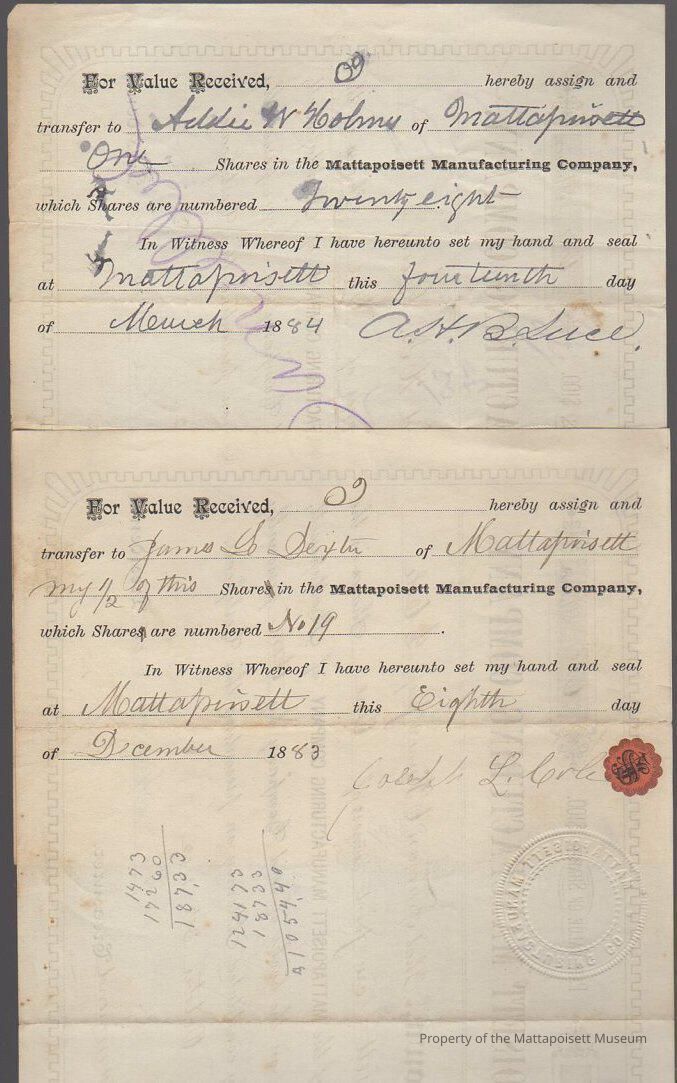 For Value Received, I hereby assign and
transfer to Addie W Holmes of Mattapoisett
One Shares in the Mattapoisett Manufacturing Company,
which Shares are numbered Twenty eight
In Witness Whereof I have hereunto set my hand and seal
at Mattapoisett this fourteenth day
of March 1884 A. H. B. Luce.
For Value Received, I hereby assign and
transfer to James L Dexter of Mattapoisett
my 1/2 of this Share in the Mattapoisett Manufacturing Company,
which Share are numbered No 19
In Witness Whereof I have hereunto set my hand and seal
at Mattapoisett this Eighth day
of December 1883
Joseph L. Cole
1473
17260
18733
124173
18733
105440
MATTAPOISETT MANUFACTURING CO.
Property of the Mattapoisett Museum